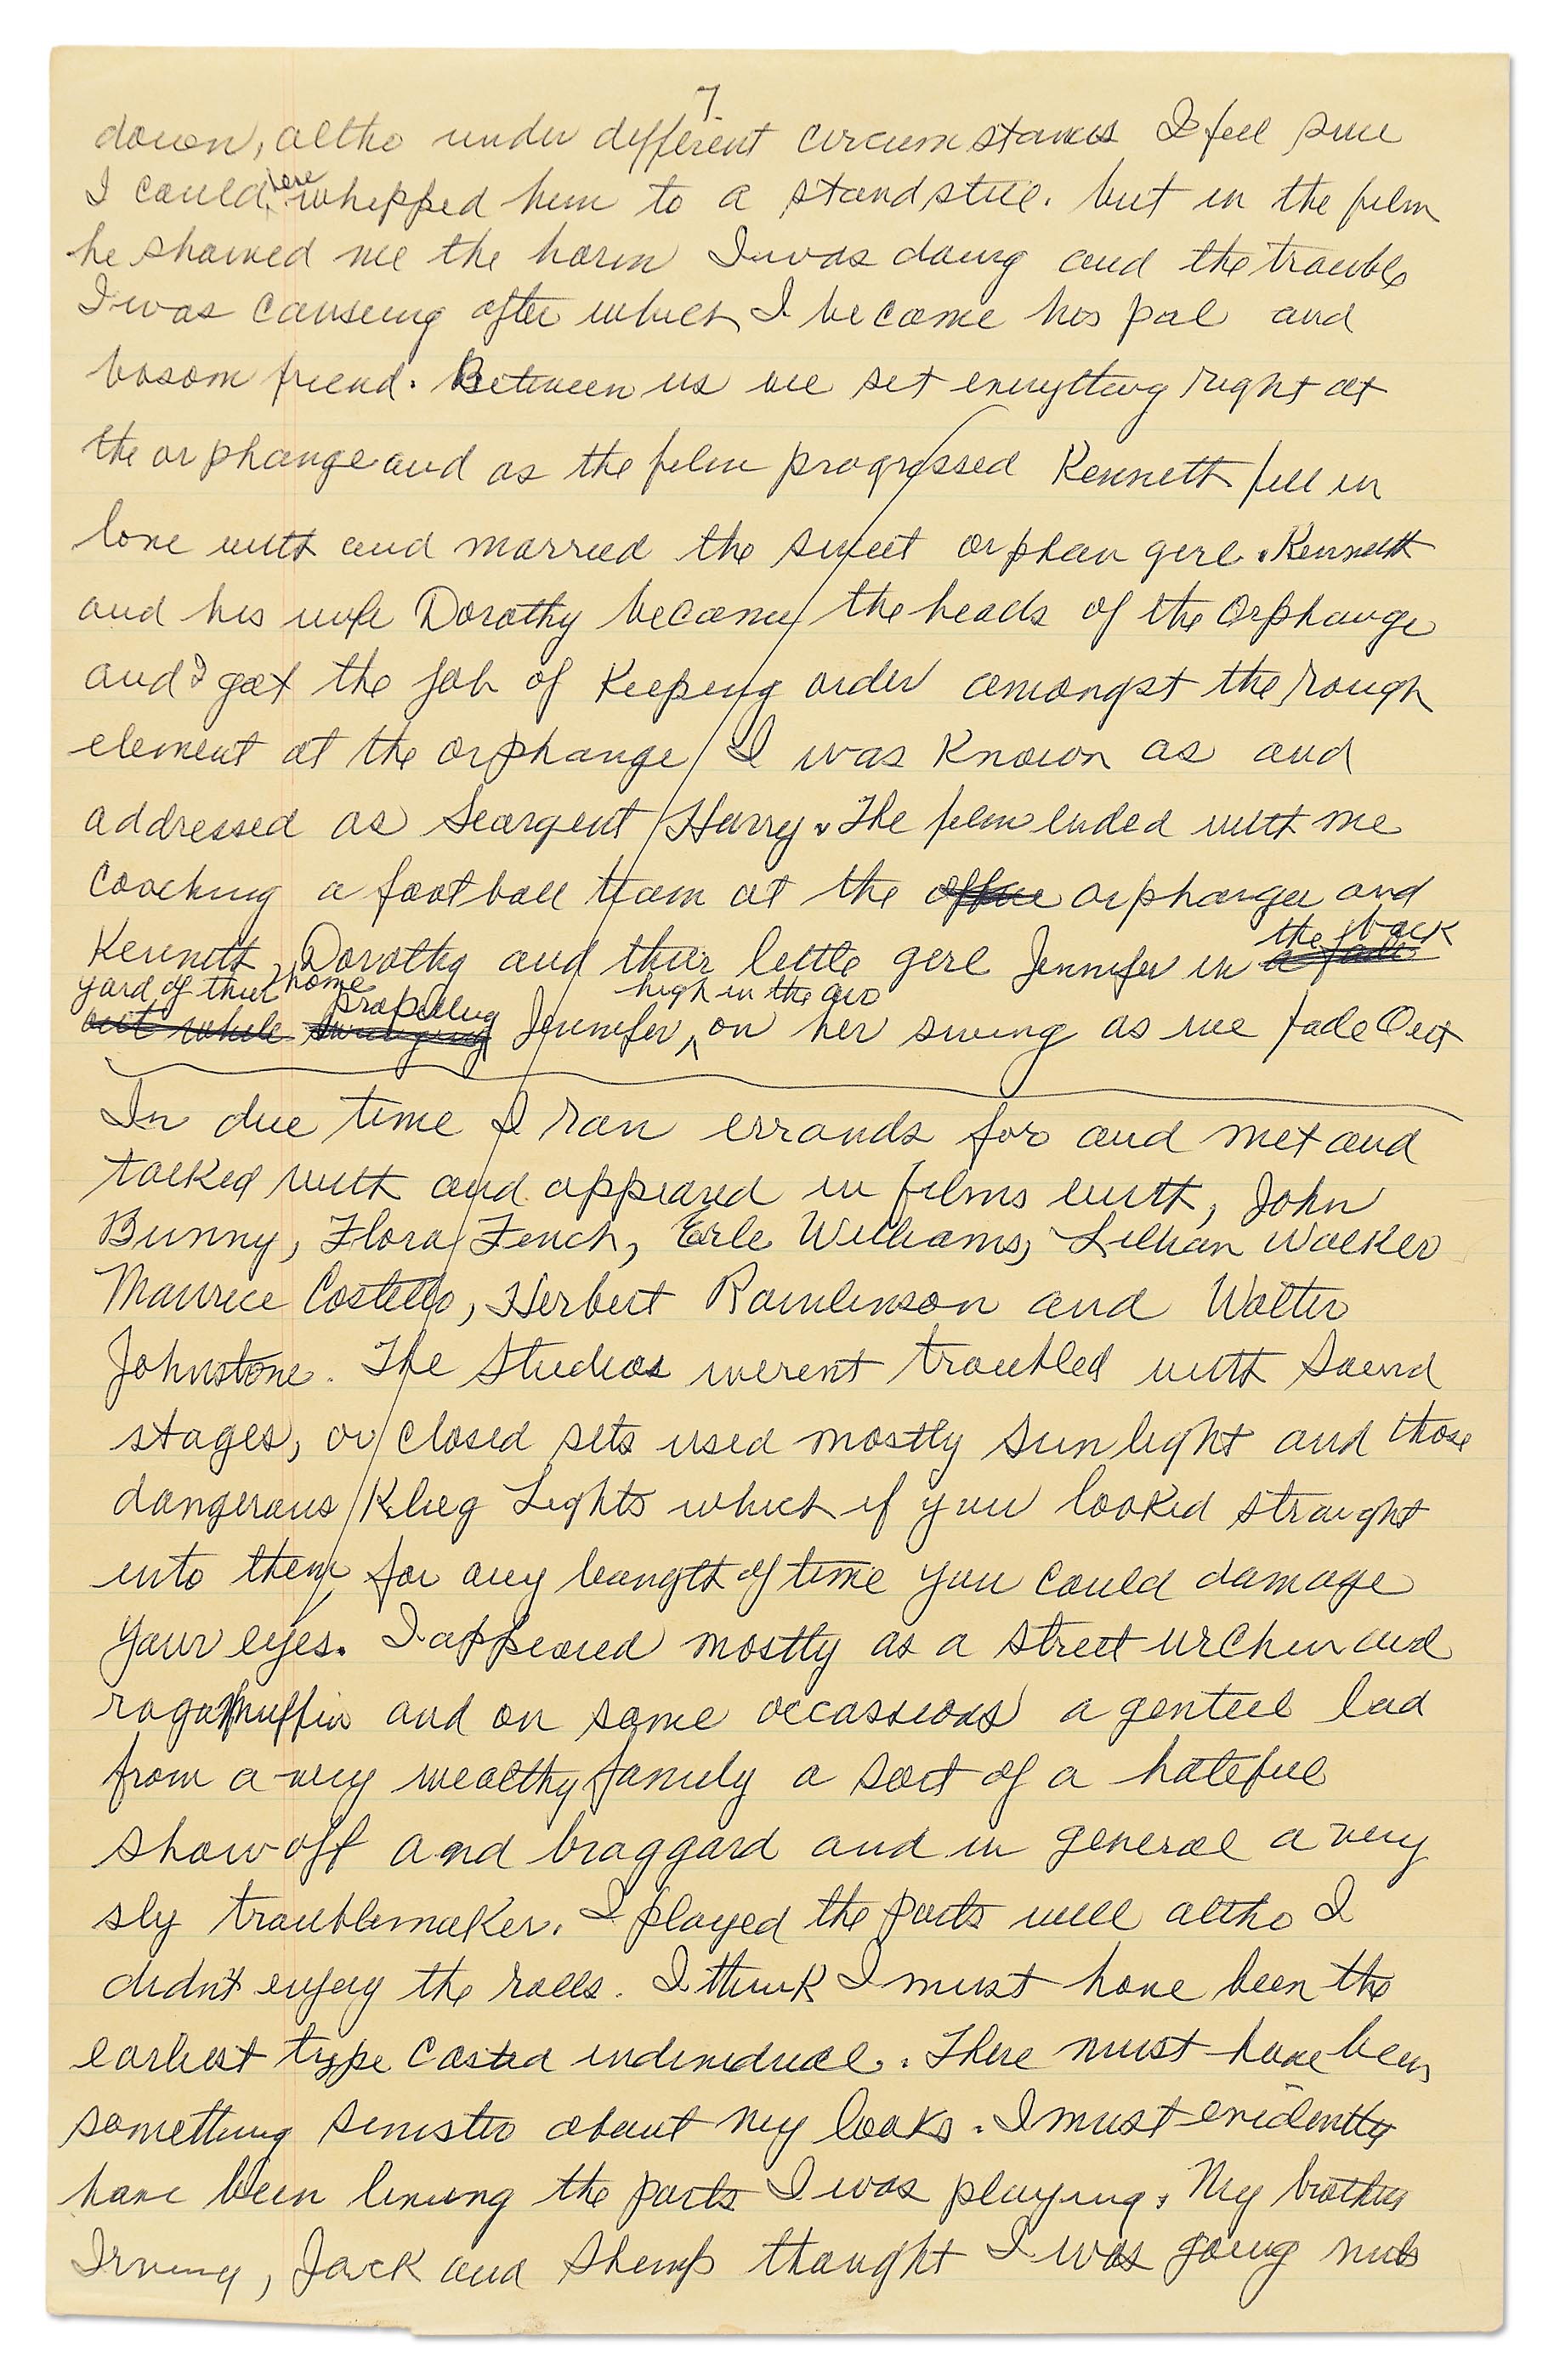 7.
down, altho under different circumstances I feel sure
I could have whipped him to a standstill. but in the film
he showed me the harm I was doing and the trouble
I was causeing after which I become his pal and
bosom friend. Between us we set everything right at
the orphange and as the film progressed Kenneth fell in
love with and married the sweet orphan girl. Kenneth
and his wife Dorothy became the heads of the Orphange
and I got the job of Keeping order amongst the rough
element at the orphange I was Known as and
addressed as Seargent Harry. The film ended with me
coaching a football team at the office orphange and
Kenneth, Dorothy and their little girl Jennifer in a fade the back
yard of their home
out while swinging propelling Jennifer high in the air on her swing as we fade Out
In due time I ran errands for and met and
talked with and appeared in films with, John
Bunny, Flora Finch, Erle Williams, Lillian Walker
Maurice Costello, Herbert Rawlinson and Walter
Johnstone. The Studios werent troubled with Sound
stages, or closed sets used mostly sunlight and those
dangerous Klieg Lights which if you looked straight
into them for any leangth of time you could damage
your eyes. I appeared mostly as a street urchin and
ragamuffin and on some occassions a genteel lad
from a very wealthy family a sort of a hateful
show off and braggard and in general a very
sly troublemaker. I played the parts well altho I
didn't enjoy the rolls. I think I must have been the
earliest type casted individual. There must have been
something sinister about my looks. I must evidently
have been liveing the parts I was playing. My brothers
Irving, Jack and Shemp thought I was going nuts